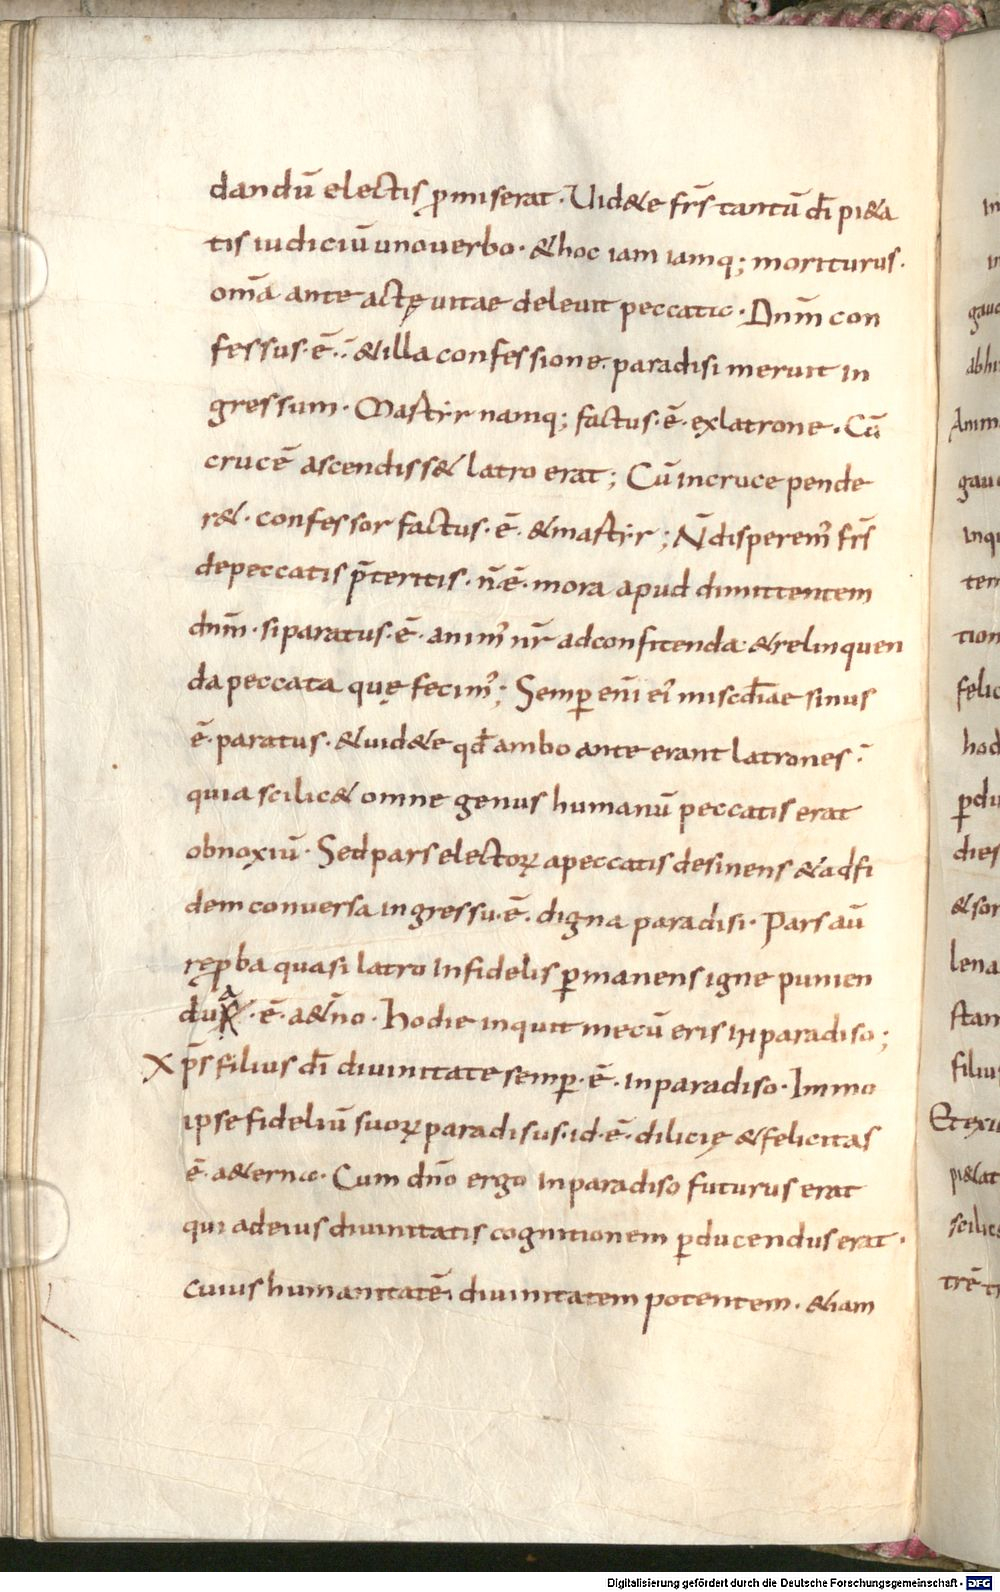 dandū electis ꝓmiserat · Uid&e frs̄ tantū dī pi&a
tis iudiciū uno uerbo · & hoc iam iamq; moriturus ·
om̄a ante actę uitae deleuit peccata · Dnm̄ con
fessus · ē · & illa confessione · paradisi meruit in
gressum · Martyr namq; factus · ē · ex latrone · Cū
crucē ascendiss& latro erat ; Cū in cruce pende
r& · confessor factus · ē · & martyr ; N̄ disperem᾽ frs̄
de peccatis p̄teritis · n̄ · ē · mora apud dimittentem
dnm̄ · si paratus · ē · anim᾽ nr̄ ad confitenda · & relinquen
da peccata quę fecim᾽ ; Semꝑ enī ei᾽ miscd̄iae sinus
ē · paratus · & uid&e qd̄ ambo ante erant latrones ·
quia scilic& omne genus humanū peccatis erat
obnoxiū · Sed pars electoꝝ a peccatis desinens & ad fi
dem conuersa ingressu · ē · digna paradisi · Pars aū
reꝓba quasi latro infidelis ꝑmanens igne punien
da · ē · a&n̄o · Hodie inquit mecū eris in paradiso ;
Xps̄ filius dī diuinitate semꝑ · ē · in paradiso · Immo
ipse fideliū suoꝝ paradisus · id · ē · dilicię & felicitas
ē · a&erna · Cum dn̄o ergo in paradiso futurus erat
qui ad eius diuinitatis cognitionem ꝑducendus erat ·
cuius humanitatē diuinitatem potentem · & iam
gaud
abhu
Anim
gaud
inqu
tem
tion
felic
hod
ꝑdu
dies
& sor
lena
stan
filiu
pi&at
scilic
Digitalisierung gefördert durch die Deutsche Forschungsgemeinschaft - DFG